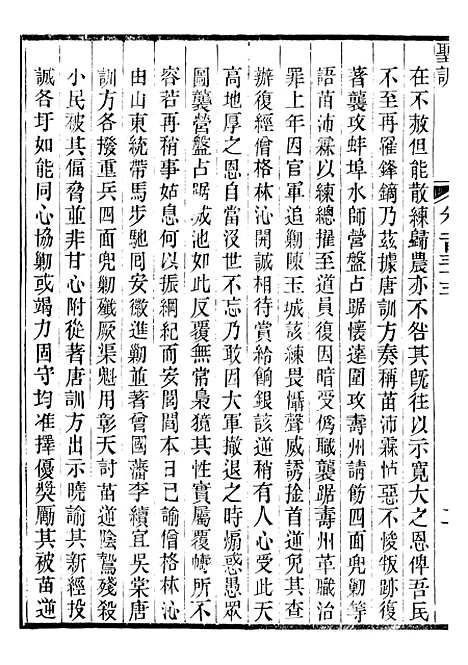 聖訓
卷一百三十三
二
在不赦但能散練歸農亦不咎其旣往以示寬大之恩俾吾民
不至再罹鋒鏑乃茲據唐訓方奏稱苗沛霖怙惡不悛叛跡復
著襲攻蚌埠水師營盤占踞懷遠圍攻壽州請飭四面兜勦等
語苗沛霖以練總擢至道員復因受僞職襲踞壽州革職治
罪上年因官軍追勦陳玉成該練畏懾聲威誘擒首逆
辦復經僧格林沁開誠撫諭赦其旣往令其殺賊立功此天
高地厚之恩自世不忘乃敢因大軍撤退之時煽惑愚眾
圖襲營盤占踞城池如此反覆無常梟獍其性實屬覆幬所不
容若再稍事姑息何以振綱紀而安閭閻本日已諭僧格林沁
由山東統帶馬步馳囘安徽進勦並著曾國藩李續宜吳棠唐
訓方各撥重兵四面兜勦殲厥渠魁用彰天討苗逆陰鷙殘殺
小民被其偪脅並非甘心附從著唐訓方出示曉諭其新經投
誠各圩如能同心協勦或竭力固守均准擇優獎勵其被苗逆